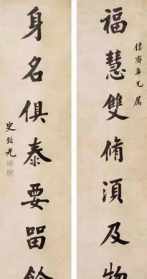 福慧雙脩須及物
身名俱泰要留餘